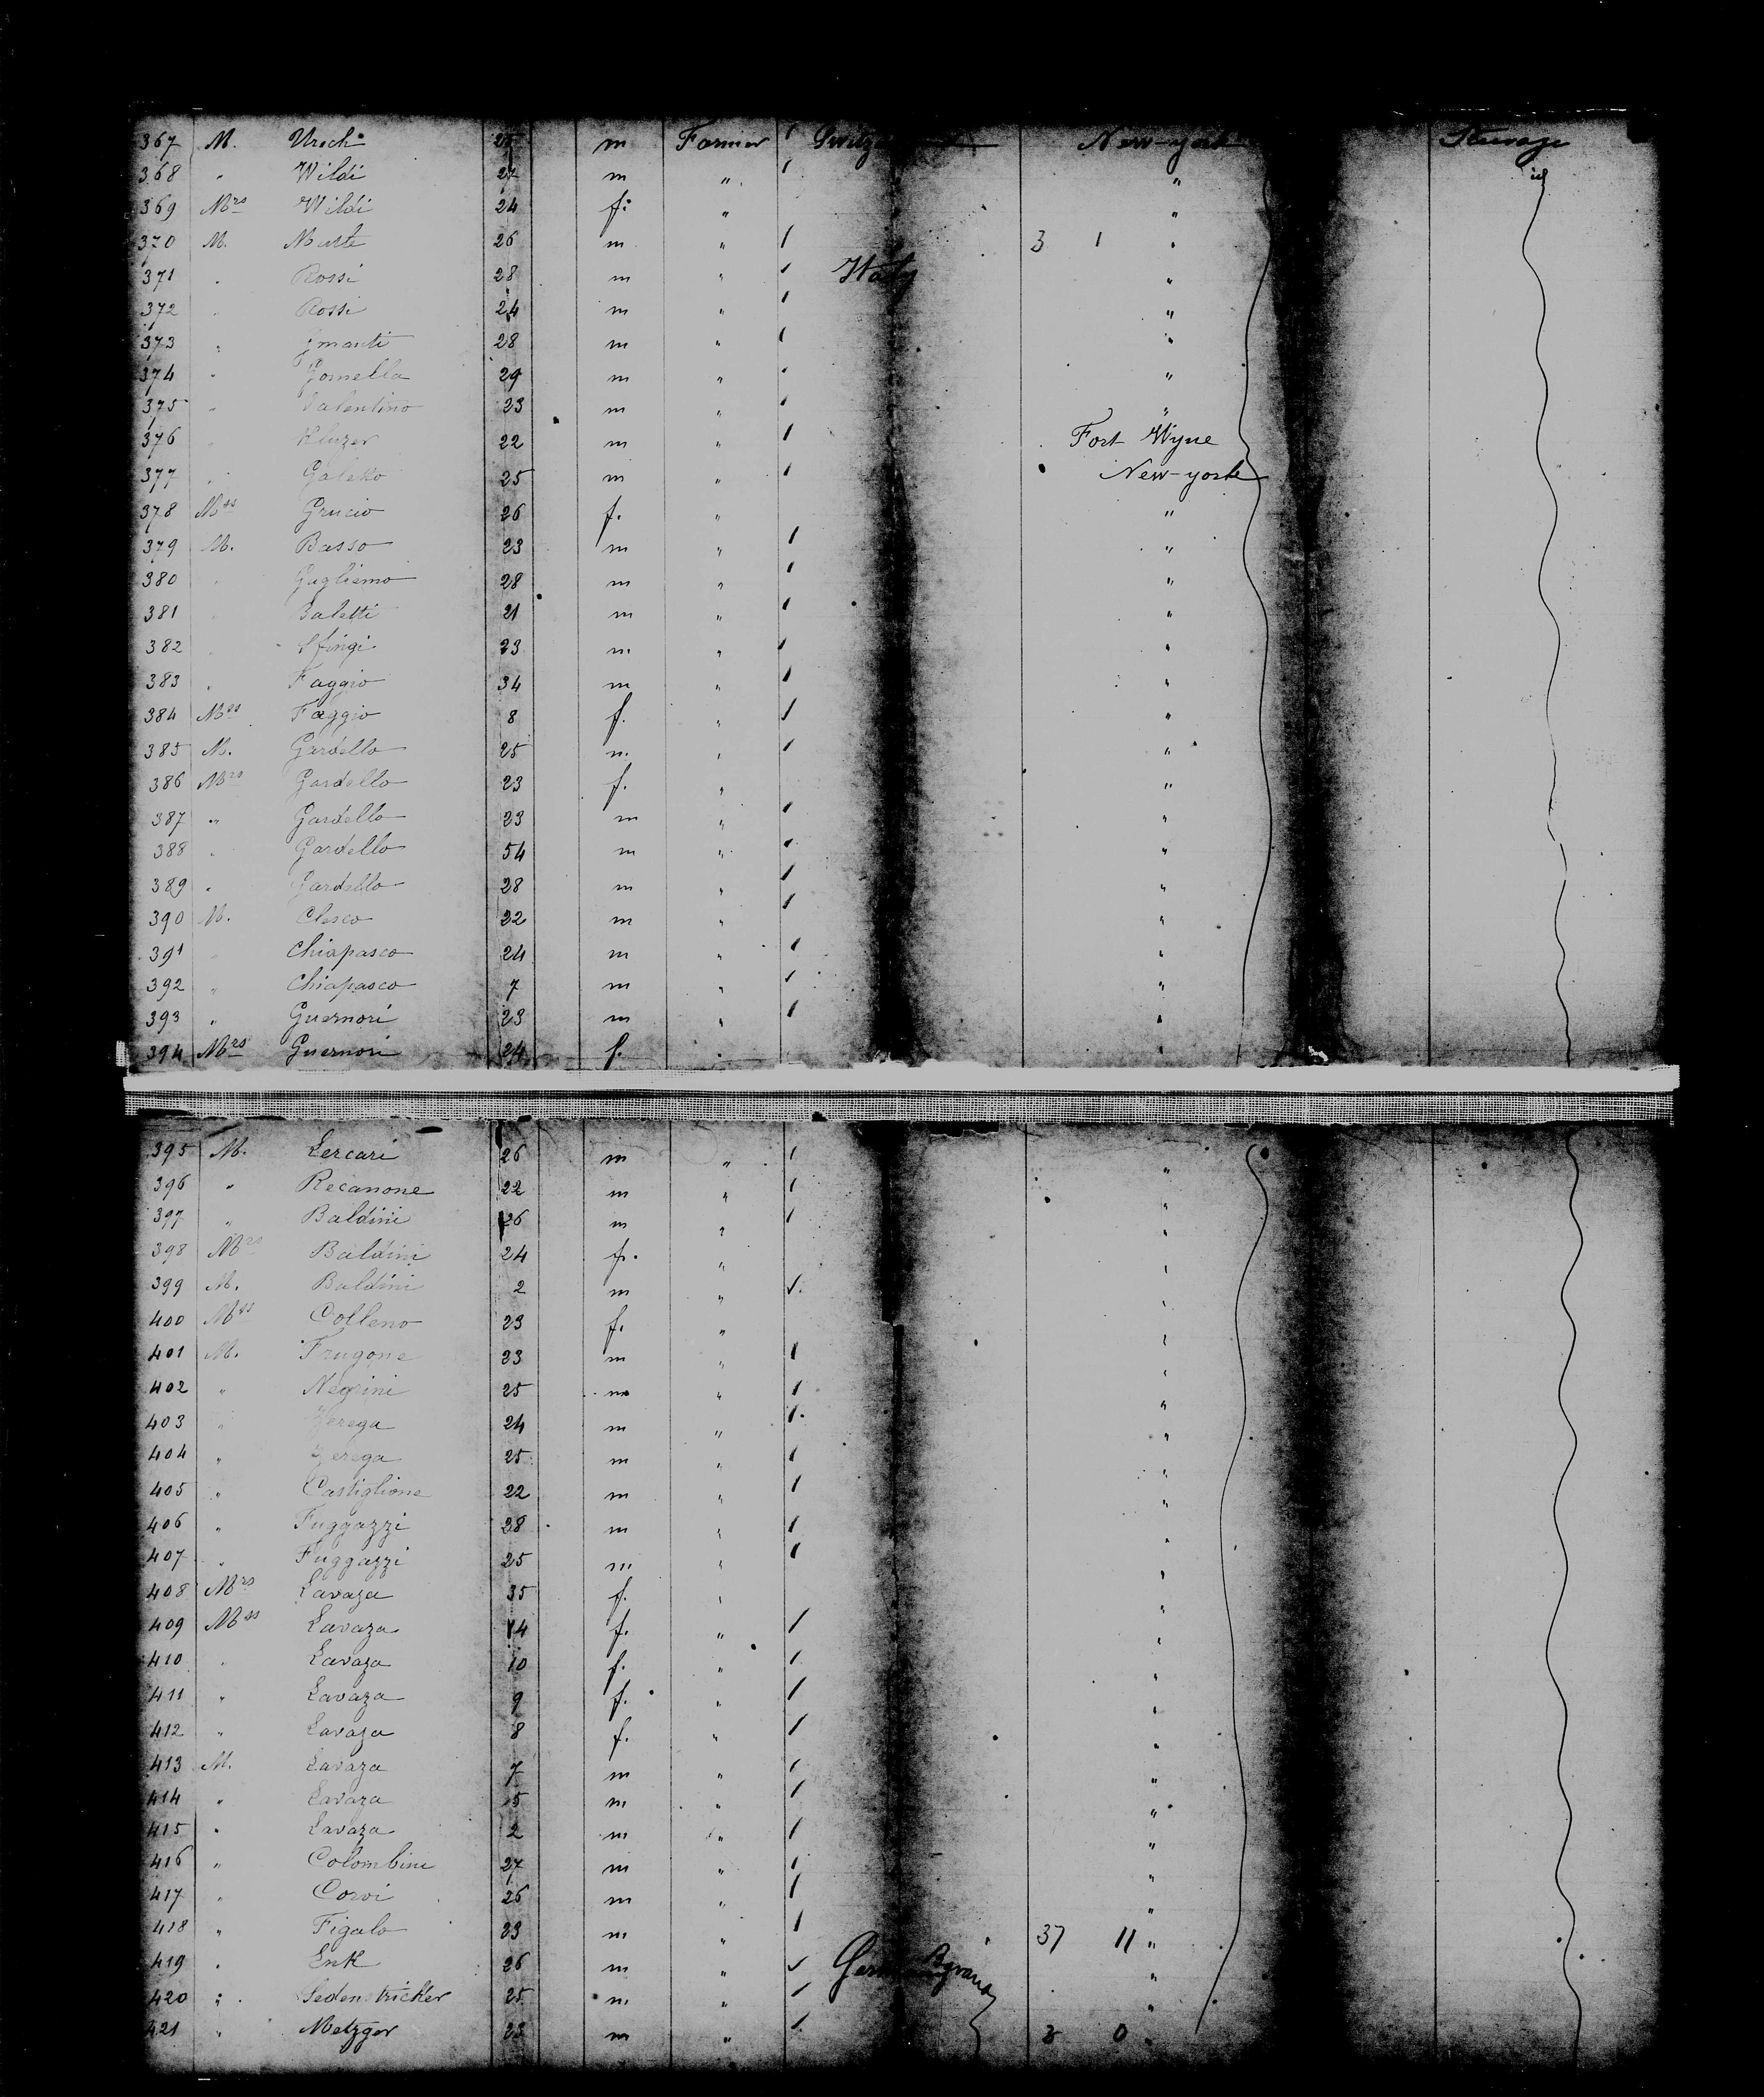 367 M. Urech 25 m Farmer New-york Steerage
368 " Wildi 27 m " " id
369 Mrs Wildi 24 f. " "
370 M. 26 m " 3 1 "
371 " Rossi 28 m " Italy "
372 " Rossi 24 m " "
373 " 28 m " "
374 " Gomella 29 m " "
375 " Valentino 23 m " "
376 " Kluzer 22 m " Fort Wyne
377 " Galetto 25 m " New-york
378 Mss Grucio 26 f. " "
379 M. Basso 23 m " "
380 " Gugliemo 28 m " "
381 " Baletti 21 m " "
382 " Sfingi 23 m " "
383 " Faggio 34 m " "
384 Mss Faggio 8 f. " "
385 M. Gardello 25 m " "
386 Mrs Gardello 23 f. " "
387 " Gardello 23 m " "
388 " Gardello 54 m " "
389 " Gardello 28 m " "
390 M. Clesco 22 m " "
391 " Chiapasco 24 m " "
392 " Chiapasco 7 m " "
393 " Guernori 23 m " "
394 Mrs Guernori 24 f. " "
395 M. Lercari 26 m " "
396 " Recanone 22 m " "
397 " Baldini 26 m " "
398 Mrs Baldini 24 f. " "
399 M. Baldini 2 m " "
400 Mss Colleno 23 f. " "
401 M. Frugone 23 m " "
402 " Negrini 25 m " "
403 " Zerega 24 m " "
404 " Zerega 25 m " "
405 " Castiglione 22 m " "
406 " Fuggazzi 28 m " "
407 " Fuggazzi 25 m " "
408 Mrs Lavaza 35 f. " "
409 Mss Lavaza 14 f. " "
410 " Lavaza 10 f. " "
411 " Lavaza 9 f. " "
412 " Lavaza 8 f. " "
413 M. Lavaza 7 m " "
414 " Lavaza 5 m " "
415 " Lavaza 2 m " "
416 " Colombini 27 m " "
417 " Corvi 26 m " "
418 " Figalo 23 m " 37 11 "
419 " Enk 26 m " "
420 " Sedenstricker 25 m " "
421 " Metzger 23 m " 3 0 "